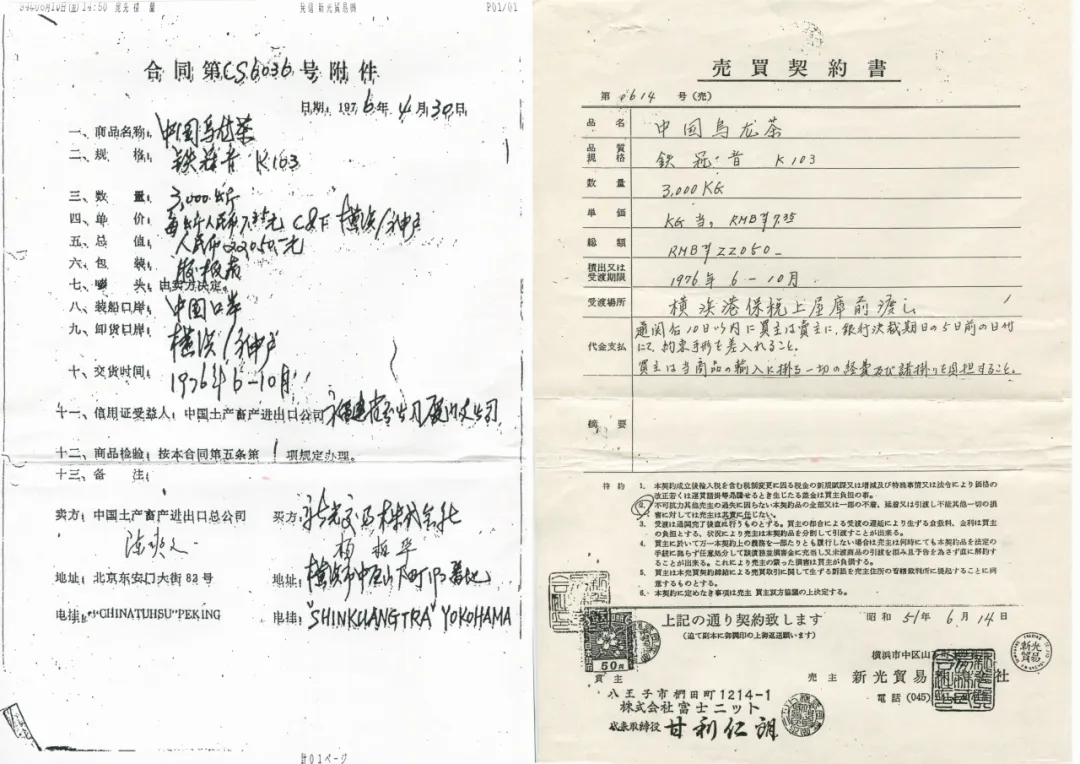 P01/01
合同第CS6036号附件
日期：1976年4月30日
一、商品名称：中国乌龙茶
二、规格：铁观音 K103
三、数量：3,000公斤
四、单价：每公斤人民币7.35元 C&F 横滨/神户
五、总值：人民币22,050.元
六、包装：胶板箱
七、唛头：由卖方决定。
八、装船口岸：中国口岸
九、卸货口岸：横滨/神户
十、交货时间：1976年6-10月
十一、信用证受益人：中国土产畜产进出口公司福建省分公司厦门支公司
十二、商品检验：按本合同第五条第1项规定办理。
十三、备注：
卖方：中国土产畜产进出口总公司
买方：新光贸易株式会社
地址：北京东安门大街82号
地址：横浜市中区山下町
电挂："CHINATUHSU"PEKING
电挂："SHINKUANGTRA" YOKOHAMA
計01ページ
売買契約書
第 0614 号（売）
品名 中国乌龙茶
品質規格 鉄观音 K103
数量 3,000KG
単価 KG当，RMB¥7.35
総額 RMB¥22050-
積出又は受渡期限 1976年 6-10月
受渡場所 横浜港保税上屋庫前渡し
代金支払 通関后10日以内に買主は賣主に、銀行決裁期日の5日前の日付
にて、約束手形を差入れること。
買主は当商品の輸入に掛る一切の経費及び諸掛りを負担すること。
摘要
特約 1. 本契約成立後輸入税を含む税制変更に因る税金の新規賦課又は増減及び特殊事情又は法令により価格の
改正若くは運賃諸掛等昂騰せるとき生じたる差金は買主負担の事。
2. 不可抗力其他売主の過失に因らない本契約品の全部又は一部の不着、延着又は引渡し不能其他一切の損
害に対しては売主は其責に任じない。
3. 受渡は通関完了後直に行うものとする。買主の都合による受渡の遅延により生ずる倉敷料、金利は買主
の負担とする。状況により売主は本契約品を分割して引渡すことが出来る。
4. 買主に於いて万一本契約上の義務を一部たりとも履行しない場合は売主は何時にても本契約品を法定の
手続に拠らず任意処分して該債務並損害金に充当し又未渡商品の引渡を拒み且予告を為さず直に解約す
ることが出来る。これにより売主の蒙った損害は買主が負担する。
5. 買主は本売買契約締結による売買取引に関して生ずる訴訟を売主住所の管轄裁判所に提起することに同
意するものとする。
6. 本契約に定めなき事項は売主 買主双方協議の上決定する。
上記の通り契約致します
（追て副本に御調印の上御返送願います）
昭和 51年 6月 14日
横浜市中区山下
売主 新光貿易 社
電話 (045)
新光貿易
50円
買主
八王子市椚田町1214-1
株式会社富士ニット
代表取締役 甘利仁朗